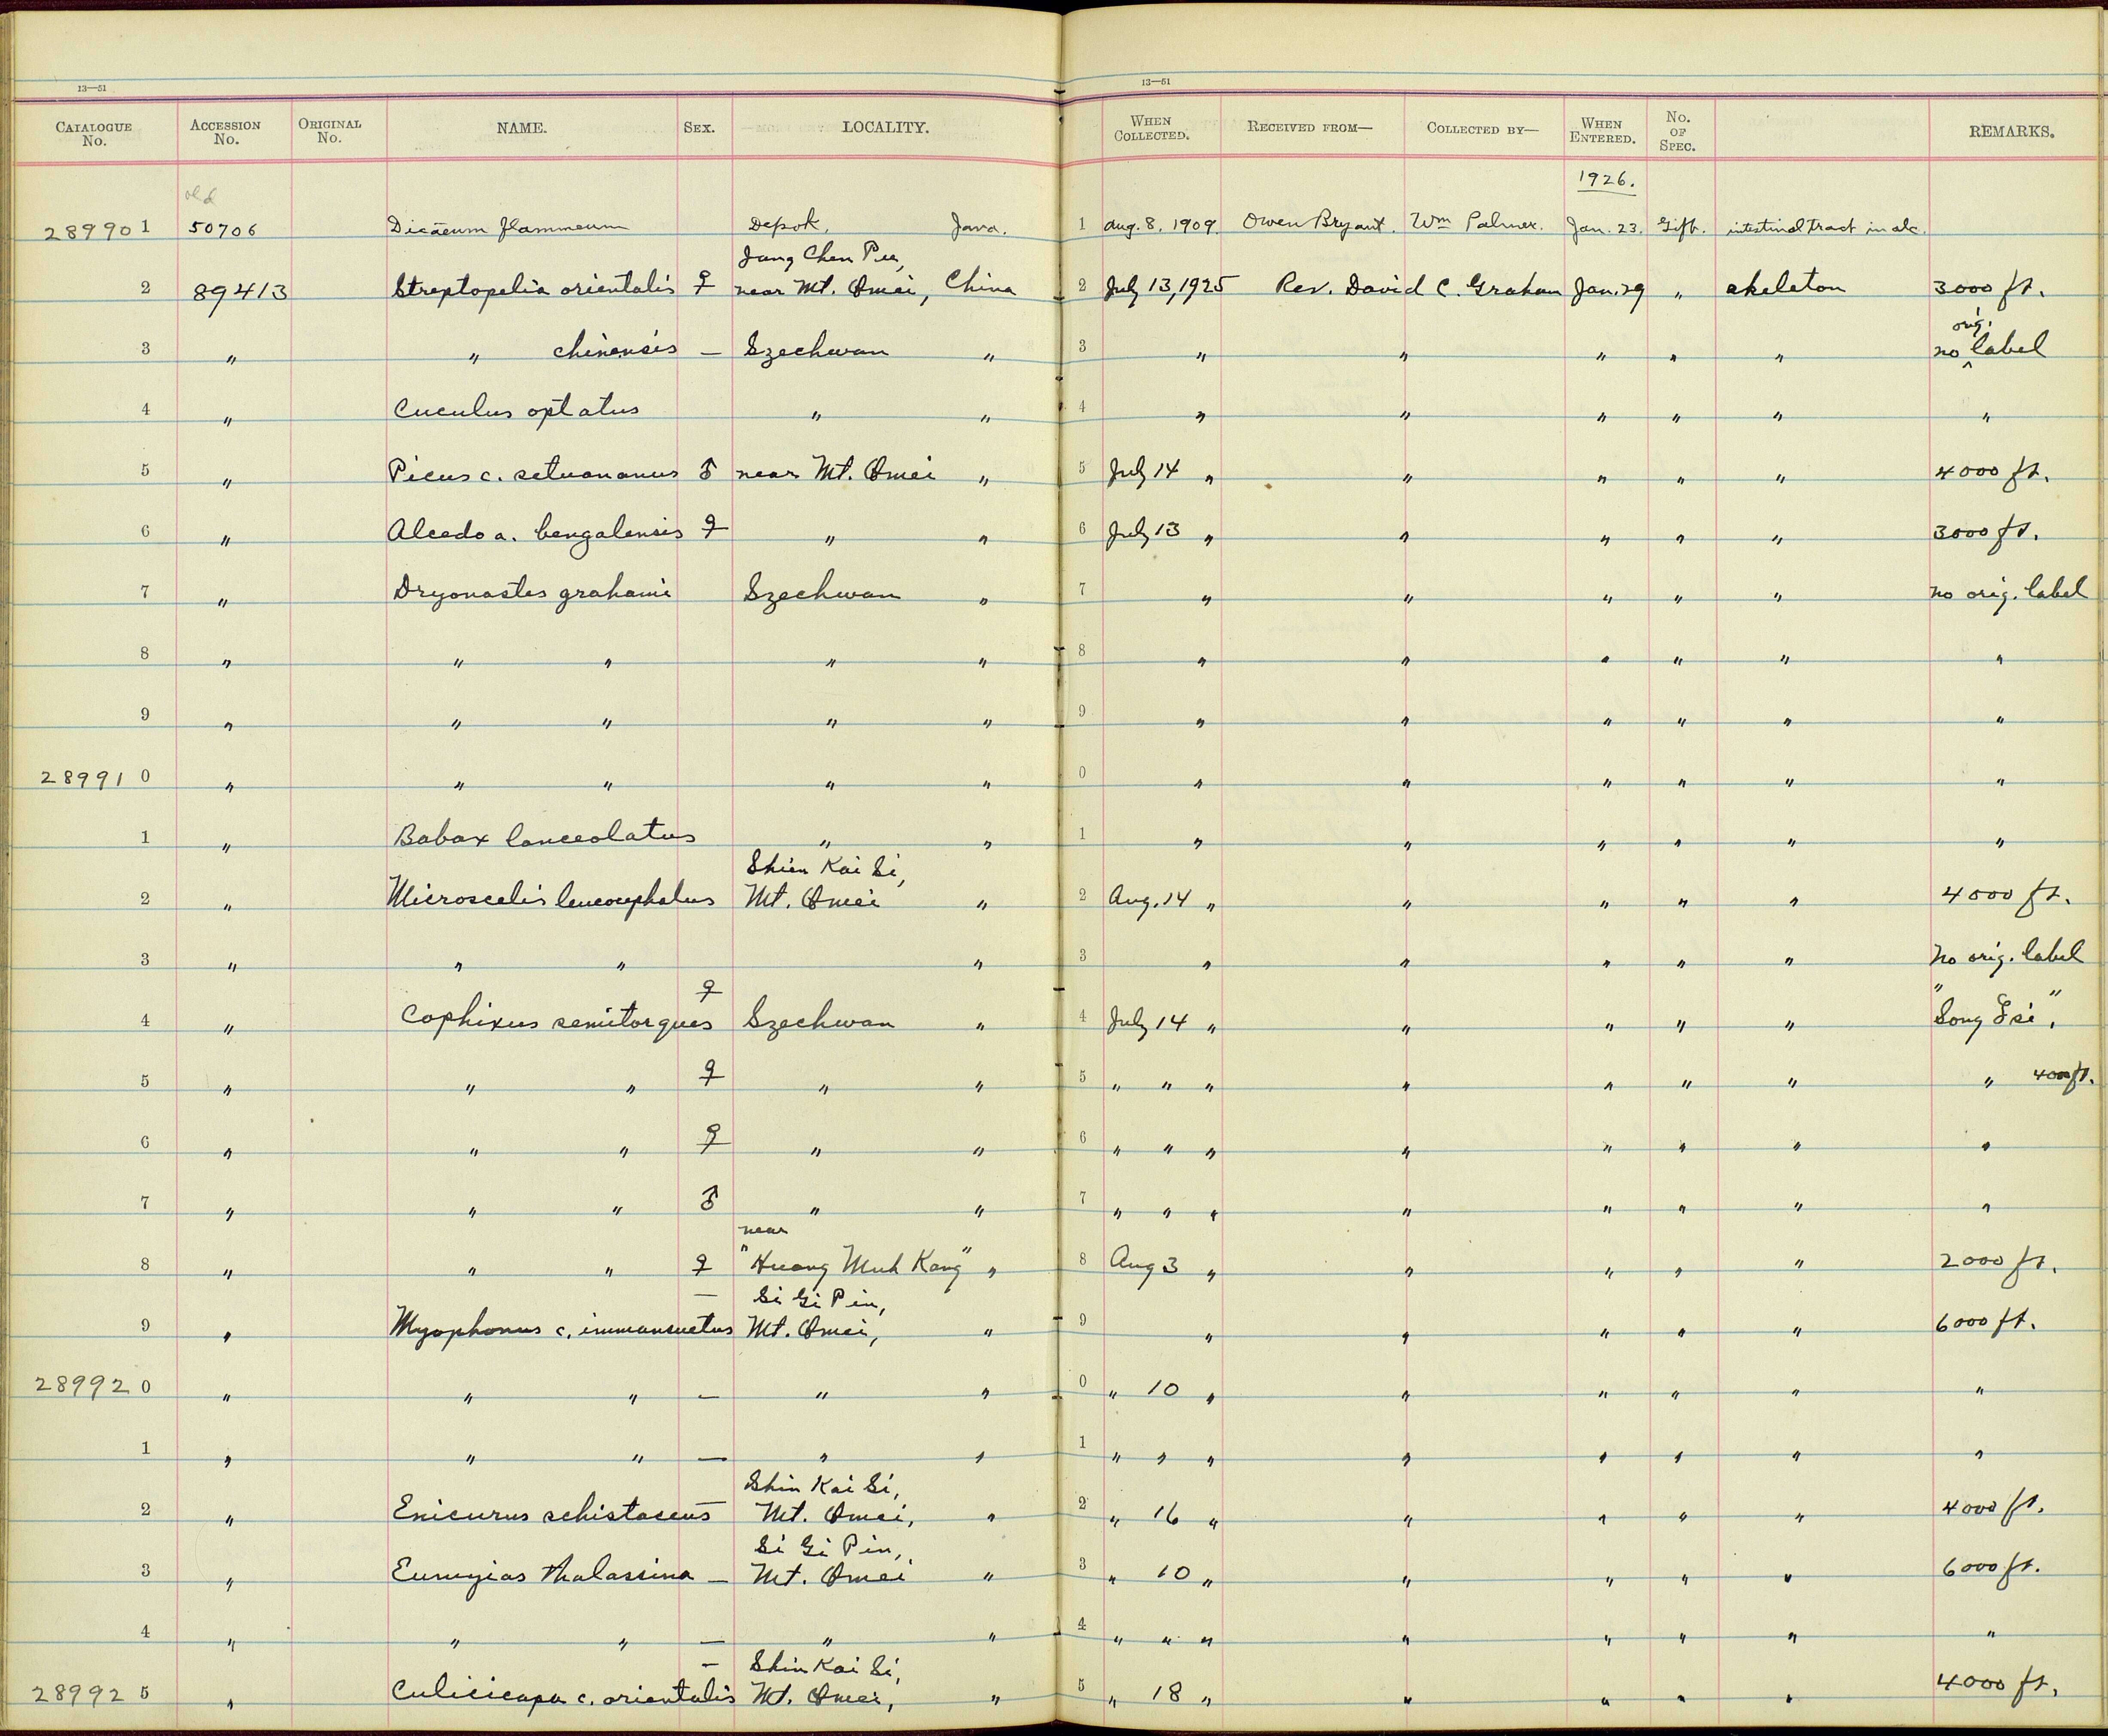 13—51
13—51
CATALOGUE No. ACCESSION No. ORIGINAL No. NAME. SEX. LOCALITY. WHEN COLLECTED. RECEIVED FROM— COLLECTED BY— WHEN ENTERED. No. OF SPEC. REMARKS.
1926.
old
289901 50706 Dicaeum flammeum Depok, Java. 1 Aug. 8, 1909. Owen Bryant. Wm Palmer. Jan. 23. Gift. intestinal tract in alc.
Jang Chen Pu,
2 89413 Streptopelia orientalis ♀ near Mt. Omei, China 2 July 13, 1925 Rev. David C. Graham Jan. 29 " skeleton 3000 ft.
orig.
3 " " chinensis — Szechwan " 3 " " " " " no ^ label
4 " Cuculus optatus " " 4 " " " " " "
5 " Picus c. setuananus ♂ near Mt. Omei " 5 July 14 " " " " " 4000 ft.
6 " Alcedo a. bengalensis ♀ " " 6 July 13 " " " " " 3000 ft.
7 " Dryonastes grahami Szechwan " 7 " " " " " no orig. label
8 " " " " " 8 " " " " " "
9 " " " " " 9 " " " " " "
289910 " " " " " 0 " " " " " "
1 " Babax lanceolatus " " 1 " " " " " "
Shien Kai Si,
2 " Microscelis leucocephalus Mt. Omei " 2 Aug. 14 " " " " " 4000 ft.
3 " " " " 3 " " " " " No orig. label
4 " Cophixus semitorques ♀ Szechwan " 4 July 14 " " " " " "Song Tsi",
5 " " " ♀ " " 5 " " " " " " " " 4000 ft.
6 " " " ♀ " " 6 " " " " " " " "
7 " " " ♂ " " 7 " " " " " " " "
near
8 " " " ♀ "Huang Muh Kang" " 8 Aug 3 " " " " " 2000 ft.
— Si Gi Pin,
9 " Myophonus c. immansuetus Mt. Omei, " 9 " " " " " 6000 ft.
289920 " " " — " " 0 " 10 " " " " " "
1 " " " — " " 1 " " " " " " " "
Shin Kai Si,
2 " Enicurus schistaceus — Mt. Omei, " 2 " 16 " " " " " 4000 ft.
Si Gi Pin,
3 " Eumyias thalassina — Mt. Omei " 3 " 10 " " " " " 6000 ft.
4 " " " — " " 4 " " " " " " " "
— Shin Kai Si,
289925 " Culicicapa c. orientalis Mt. Omei, " 5 " 18 " " " " " 4000 ft.